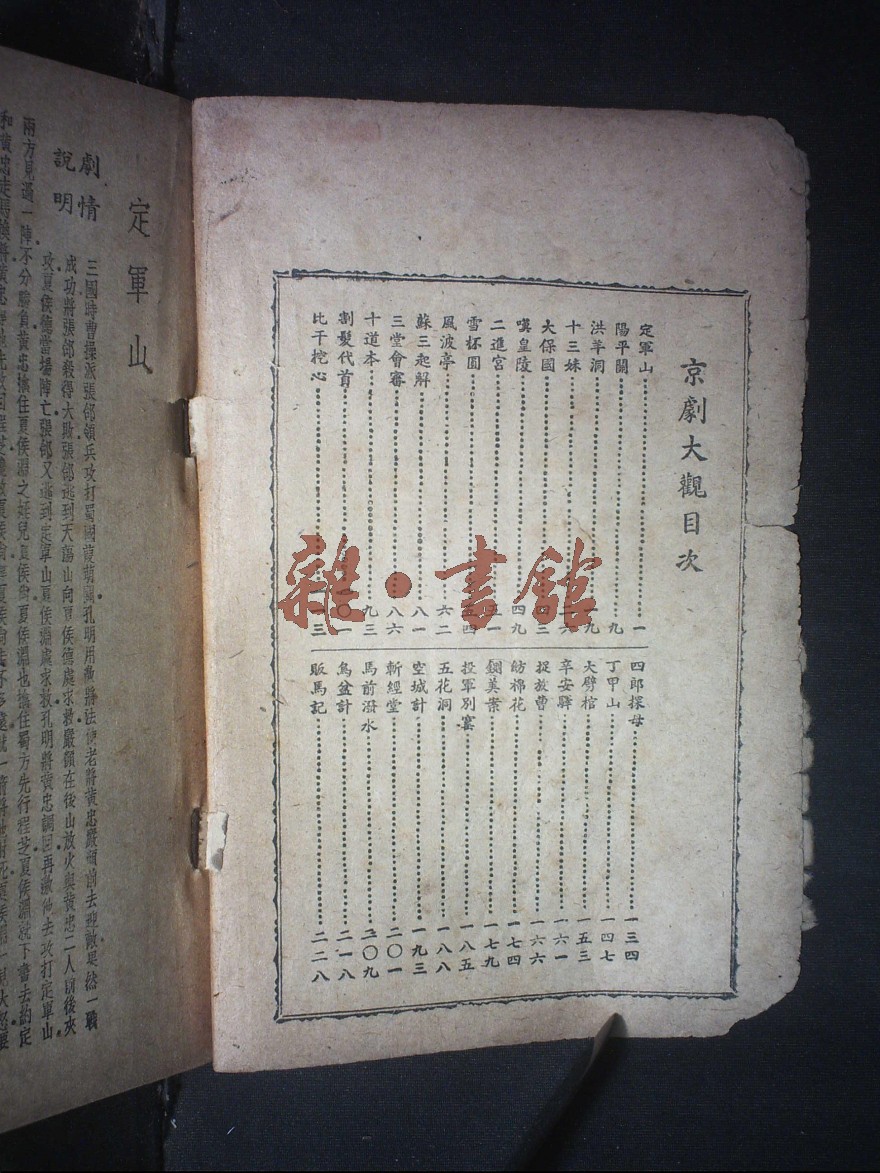 京劇大觀目次
定軍山 一
陽平關 九
洪羊洞 一九
十三妹 二六
大保國 四三
嘆皇陵 四九
二進宮 五一
雪杯圓 五四
風波亭 六二
蘇三起解 八一
三堂會審 八六
十道本 九三
割髮代首 一〇一
比干挖心 一一三
四郎探母 一三四
丁甲山 一四七
大劈棺 一五三
辛安驛 一六一
捉放曹 一六六
紡棉花 一七四
鍘美案 一七九
投軍別窰 一八五
五花洞 一八八
空城計 一九三
斬經堂 二〇一
馬前潑水 二〇九
烏盆計 二一八
販馬記 二二八
雜·書館
定軍山
劇情
說明
三國時曹操派張郃領兵攻打蜀國葭萌關孔明用激將法使老將黃忠嚴顏前去迎敵果然一戰
成功將張郃殺得大敗張郃逃到天蕩山向夏侯德處求救嚴顏在後山放火與黃忠二人前後夾
攻夏侯德當場陣亡張郃又逃到定軍山夏侯淵處求救孔明將黃忠調回再激他去攻打定軍山
兩方見過一陣不分勝負黃忠擒住夏侯淵之姪兒夏侯尚夏侯淵也擒住蜀方先行程芝夏侯淵就下書去約定